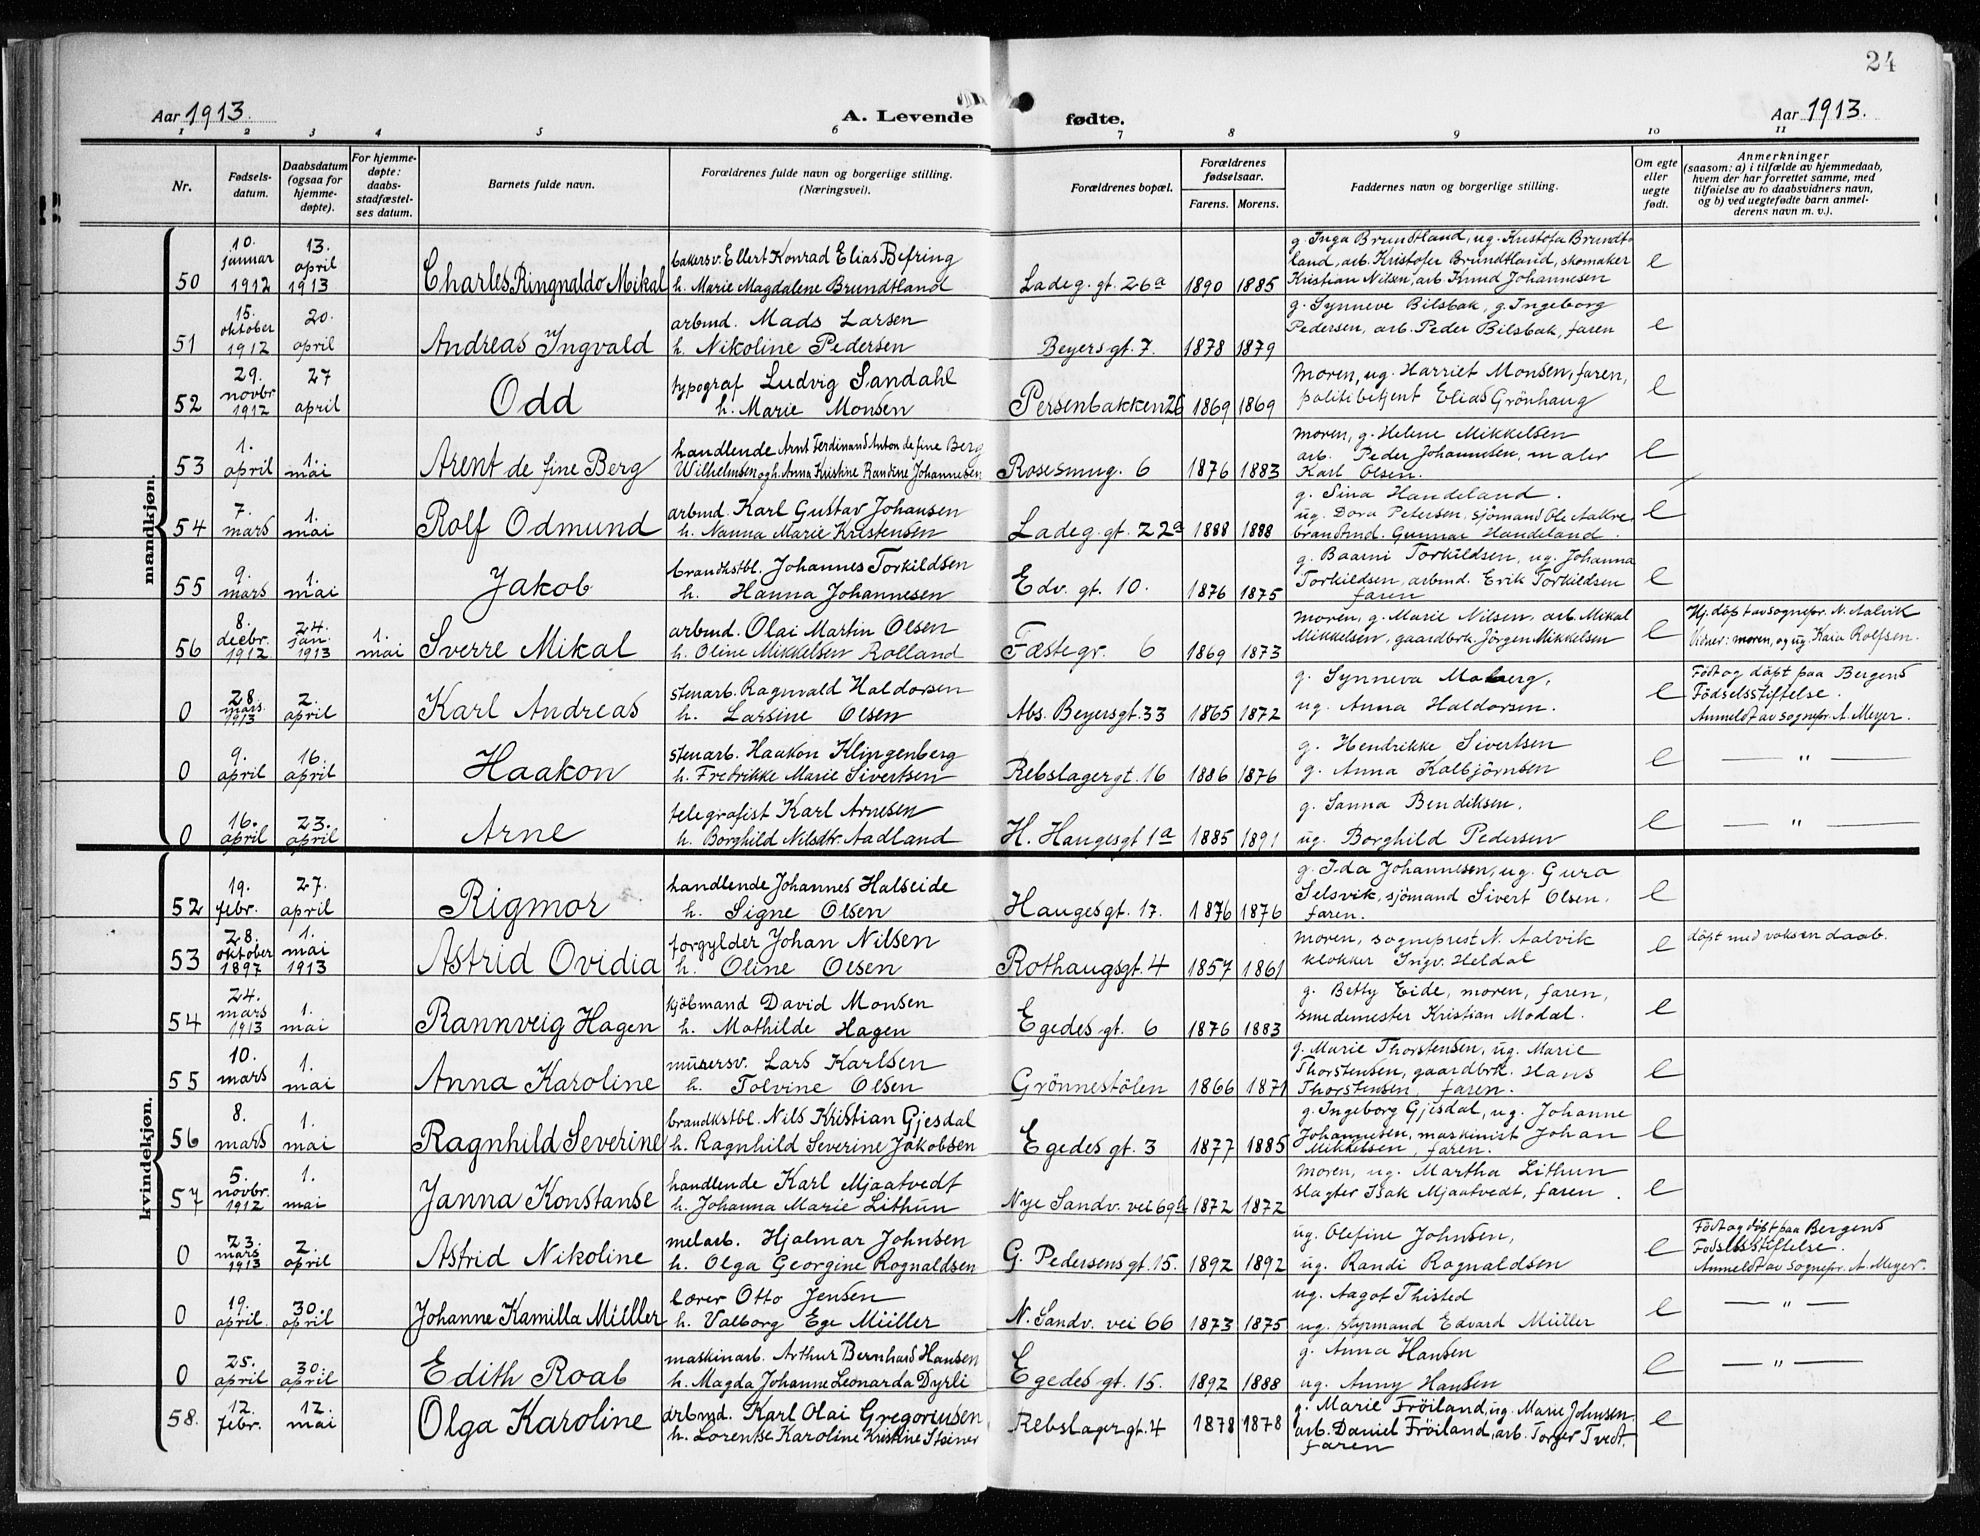 24
Aar 1913.
A. Levende
fødte.
Aar 1913.
1 2 3 4 5 6 7 8 9 10 11
Nr.
Fødsels-
datum.
Daabsdatum
(ogsaa for
hjemme-
døpte).
For hjemme-
døpte:
daabs-
stadfæstel-
ses datum.
Barnets fulde navn.
Forældrenes fulde navn og borgerlige stilling.
(Næringsvei).
Forældrenes bopæl.
Forældrenes
fødselsaar.
Farens. Morens.
Faddernes navn og borgerlige stilling.
Om egte
eller
uegte
født.
Anmerkninger
(saasom: a) i tilfælde av hjemmedaab,
hvem der har forrettet samme, med
tilføielse av to daabsvidners navn,
og b) ved uegtefødte barn anmel-
derens navn m. v.).
mandkjøn.
50
10.
januar
1912
13.
april
1913
Charles Ringnaldo Mikal
bakersv. Ellert Konrad Elias Befring
h. Marie Magdalene Brundtland
Ladeg. gt. 26a
1890
1885
g. Inga Brundtland, ug. Kristofa Brundt-
land, arb. Kristofer Brundtland, skomaker
Kristian Nilsen, arb. Knud Johannesen
e
51
15.
oktober
1912
20.
april
Andreas Ingvald
arbmd. Mads Larsen
h. Nikoline Pedersen
Beyersgt. 7.
1878
1879
g. Synneve Bilsbak, g. Ingeborg
Pedersen, arb. Peder Bilsbak, faren
e
52
29.
novbr
1912
27
april
Odd
typograf Ludvig Sandahl
h. Marie Monsen
Persenbakken 26
1869
1869
moren, ug. Harriet Monsen, faren,
politibetjent Elias Grönhaug
e
53
1.
april
1.
mai
Arent de fine Berg
handlende Arnt Ferdinand Anton de fine Berg
Wilhelmsen og h. Anna Kristine Randine Johannesen
Rosesmug. 6
1876
1883
moren, g. Helene Mikkelsen
arb. Peder Johannesen, maler
Karl Olsen.
e
54
7.
mars
1.
mai
Rolf Odmund
arbmd. Karl Gustav Johansen
h. Nanna Marie Kristensen
Ladeg. gt. 22a
1888
1888
g. Sina Handeland.
ug. Dora Petersen, sjömand Ole Aakre
brandtmd. Gunnar Handeland.
e
55
9.
mars
1.
mai
Jakob
brandkstbl. Johannes Torkildsen
h. Hanna Johannesen
Edv. gt. 10.
1876
1875
g. Baarni Torkildsen, ug. Johanna
Torkildsen, arbmd. Erik Torkildsen
faren
e
56
8.
decbr.
1912
24.
jan.
1913
1.
mai
Sverre Mikal
arbmd. Olai Martin Olsen
h. Oline Mikkelsen Rolland
Fæstegr. 6
1869
1873
moren, g. Marie Nilsen, arb. Mikal
Mikkelsen, gaardbrk. Jörgen Mikkelsen
e
Hj. döpt av sognepr. N. Aalvik
Vidner: moren, og ug. Kaia Rolfsen.
0
28.
mars.
1913
2.
april
Karl Andreas
stenarb. Ragnvald Haldorsen
h. Larsine Olsen
Abs. Beyersgt. 33
1865
1872
g. Synneva Moberg,
ug. Anna Haldorsen.
e
Født og döpt paa Bergens
Födselsstiftelse.
Anmeldt av sognepr. A. Meyer.
0
9.
april
16.
april
Haakon
stenarb. Haakon Klingenberg
h. Fredrikke Marie Sivertsen
Rebslagergt. 16
1886
1876
g. Hendrikke Sivertsen
g. Anna Kolbjörnsen
e
— " —
0
16.
april
23.
april
Arne
telegrafist Karl Arnesen
h. Borghild Nilsdtr. Aadland
H. Haugesgt 1a
1885
1891
g. Sanna Bendiksen.
ug. Borghild Pedersen
e
— " —
kvindekjøn.
52
19.
febr.
27.
april
Rigmor
handlende Johannes Halseide
h. Signe Olsen
Haugesgt. 17.
1876
1876
g. Ida Johannesen, ug. Gura
Selsvik, sjömand Sivert Olsen,
faren.
e
53
28.
oktober
1897
1.
mai
1913
Astrid Ovidia
forgylder Johan Nilsen
h. Oline Olsen
Rothaugsgt. 4
1857
1861
moren, sogneprest N. Aalvik
klokker Ingv. Heldal
e
döpt med voksen daab.
54
24.
mars
1913
1.
mai
Rannveig Hagen
kjöbmand David Monsen
h. Mathilde Hagen
Egedes gt. 6
1876
1883
g. Betty Eide, moren, faren,
smedemester Kristian Modal.
e
55
10.
mars
1.
mai
Anna Karoline
murersv. Lars Karlsen
h. Tolvine Olsen
Grönnestölen
1866
1871
g. Marie Thorstensen, ug. Marie
Thorstensen, gaardbrk. Hans
Thorstensen, faren.
e
56
8.
mars
1.
mai
Ragnhild Severine
brandkstbl. Nils Kristian Gjesdal
h. Ragnhild Severine Jakobsen
Egedes gt. 3
1877
1885
g. Ingeborg Gjesdal, ug. Johanne
Johannesen, maskinist Johan
Mikkelsen, faren.
e
57
5.
novbr.
1912
1.
mai
Janna Konstanse
handlende Karl Mjaatvedt
h. Johanna Marie Lithun
Nye Sandv. vei 69b
1872
1872
moren, ug. Martha Lithun
slagter Isak Mjaatvedt, faren.
e
0
23.
mars
1913
2.
april
Astrid Nikoline
melarb. Hjalmar Johnsen
h. Olga Georgine Rognaldsen
G. Pedersens gt. 15.
1892
1892
ug. Olefine Johnsen,
ug. Randi Rognaldsen
e
Födt og döpt paa Bergens
Födselsstiftelse.
Anmeldt av Sognepr. A. Meyer.
0
19.
april.
30.
april
Johanne Kamilla Müller
lærer Otto Jensen
h. Valborg Ege Müller
N. Sandv. vei 66
1873
1875
ug. Aagot Thisted
ug. styrmand Edvard Müller
e
— " —
0
25.
april
30.
april
Edith Roab
maskinarb. Arthur Bernhard Hansen
h. Magda Johanne Leonarda Dyrli
Egedes gt. 15.
1892
1888
g. Anna Hansen
ug. Anny Hansen
e
— " —
58.
12.
febr.
12.
mai
Olga Karoline
arbmd. Karl Olai Gregoriusen
h. Lorentse Karoline Kristine Steiner
Rebslagergt. 4
1878
1878
g. Marie Fröiland, ug. Marie Johnsen.
arb. Daniel Fröiland, arb. Torger Tvedt.
faren
e